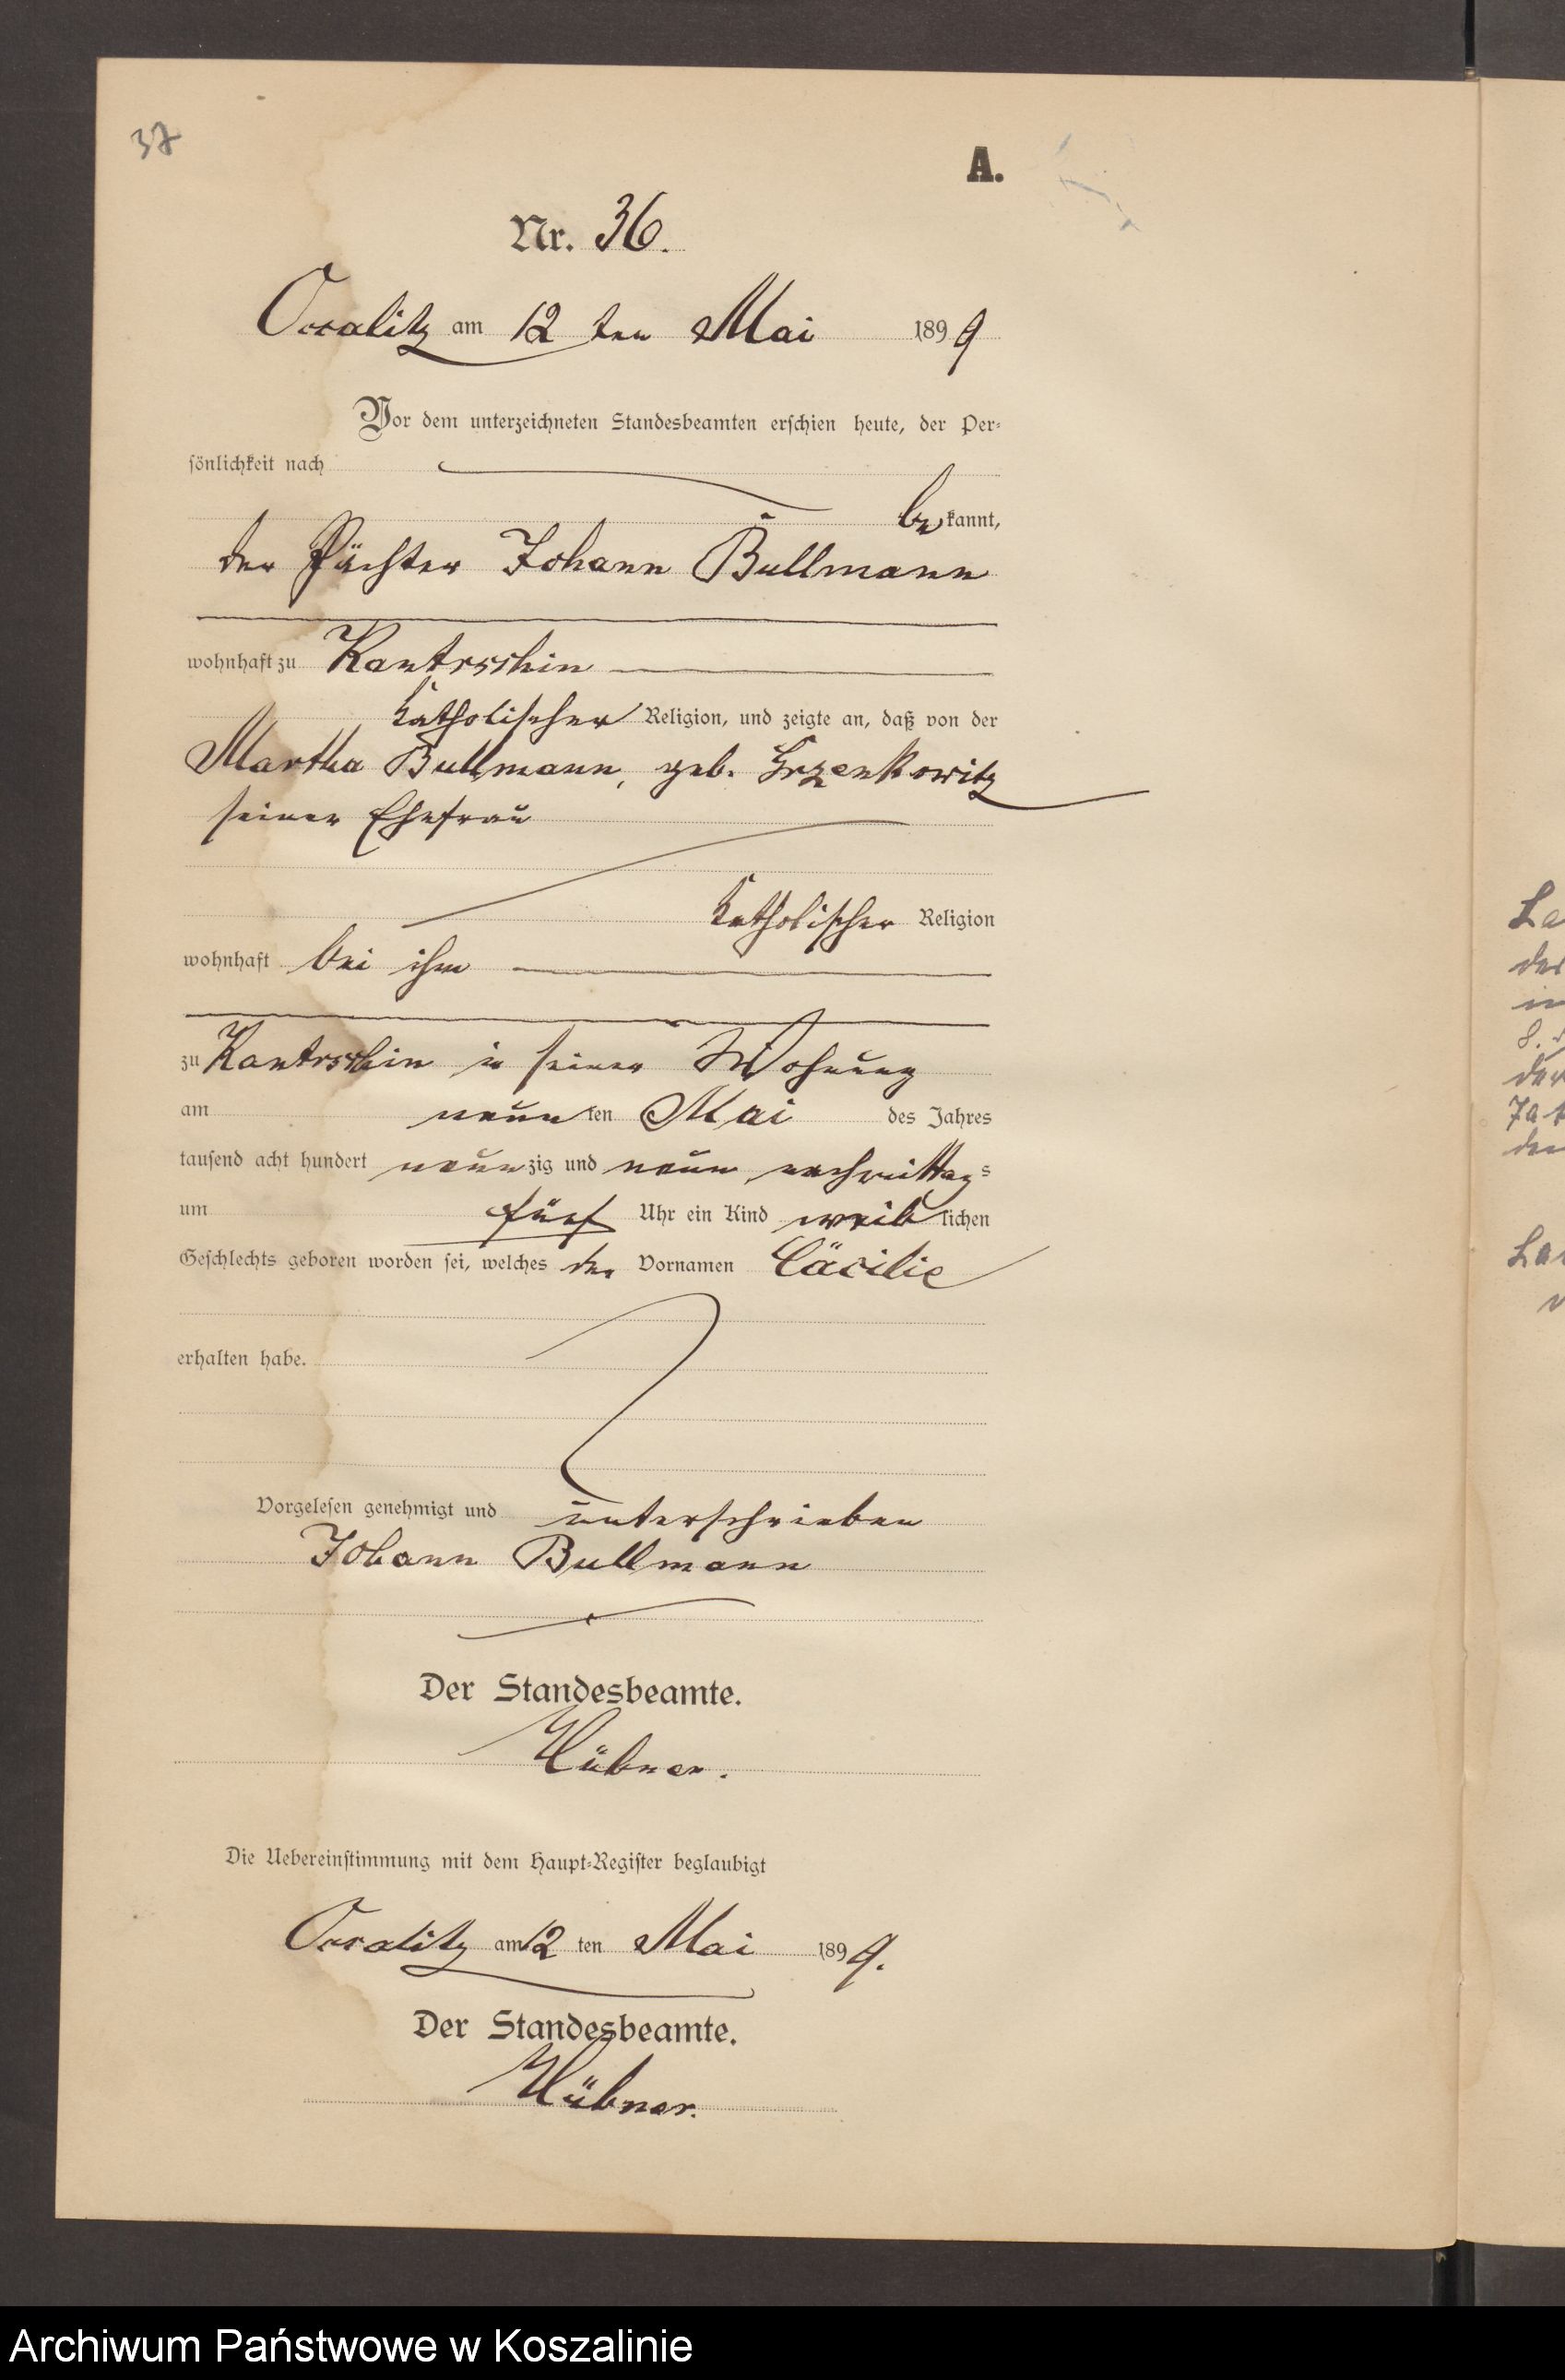 37
A.
Nr. 36.
Ossalitz am 12 ten Mai 1899
Vor dem unterzeichneten Standesbeamten erschien heute, der Per-
sönlichkeit nach
bekannt,
der Pächter Johann Bullmann
wohnhaft zu Kantrschin
katholischer Religion, und zeigte an, daß von der
Martha Bullmann, geb. Grzenkowitz
seiner Ehefrau
katholischer Religion
wohnhaft bei ihm
zu Kantrschin in seiner Wohnung
am neunten Mai des Jahres
tausend acht hundert neunzig und neun nachmittags
um fünf Uhr ein Kind weiblichen
Geschlechts geboren worden sei, welches den Vornamen Cäcilie
erhalten habe.
Vorgelesen genehmigt und unterschrieben
Johann Bullmann
Der Standesbeamte.
Hübner.
Die Uebereinstimmung mit dem Haupt-Register beglaubigt
Ossalitz am 12 ten Mai 1899.
Der Standesbeamte.
Hübner.
Archiwum Państwowe w Koszalinie